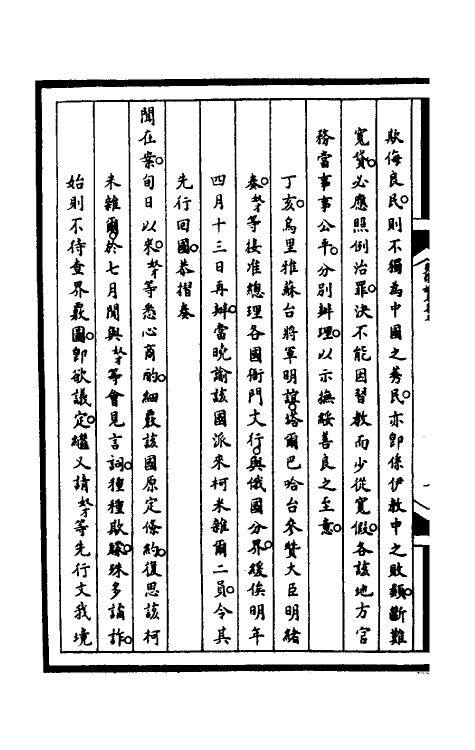 欺侮良民。則不獨為中國之莠民。亦卽係伊教中之敗類。斷難
寬貸。必應照例治罪。決不能因習教而少從寬假。各該地方官
務當事事公平。分別辦理。以示撫綏善良之至意。
丁亥。烏里雅蘇台將軍明誼。塔爾巴哈台參贊大臣明緒
奏。奴才等接准總理各國衙門文行。與俄國分界。緩俟明年
四月十三日再辦。當曉諭該國派來柯米薩爾二員。令其
先行回國。恭摺奏
聞在案。旬日以來。奴才等悉心商酌。細覈該國原定條約。復思該柯
米薩爾。於七月間與奴才等會見言詞。種種欺矇。殊多譎詐。
始則不待查界覈圖。卽欲議定。繼又請奴才等先行文我境